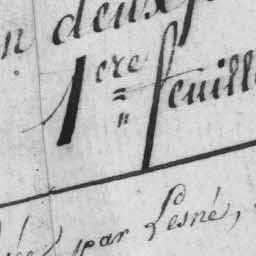 n deux
1ere feuill
par Lesné,